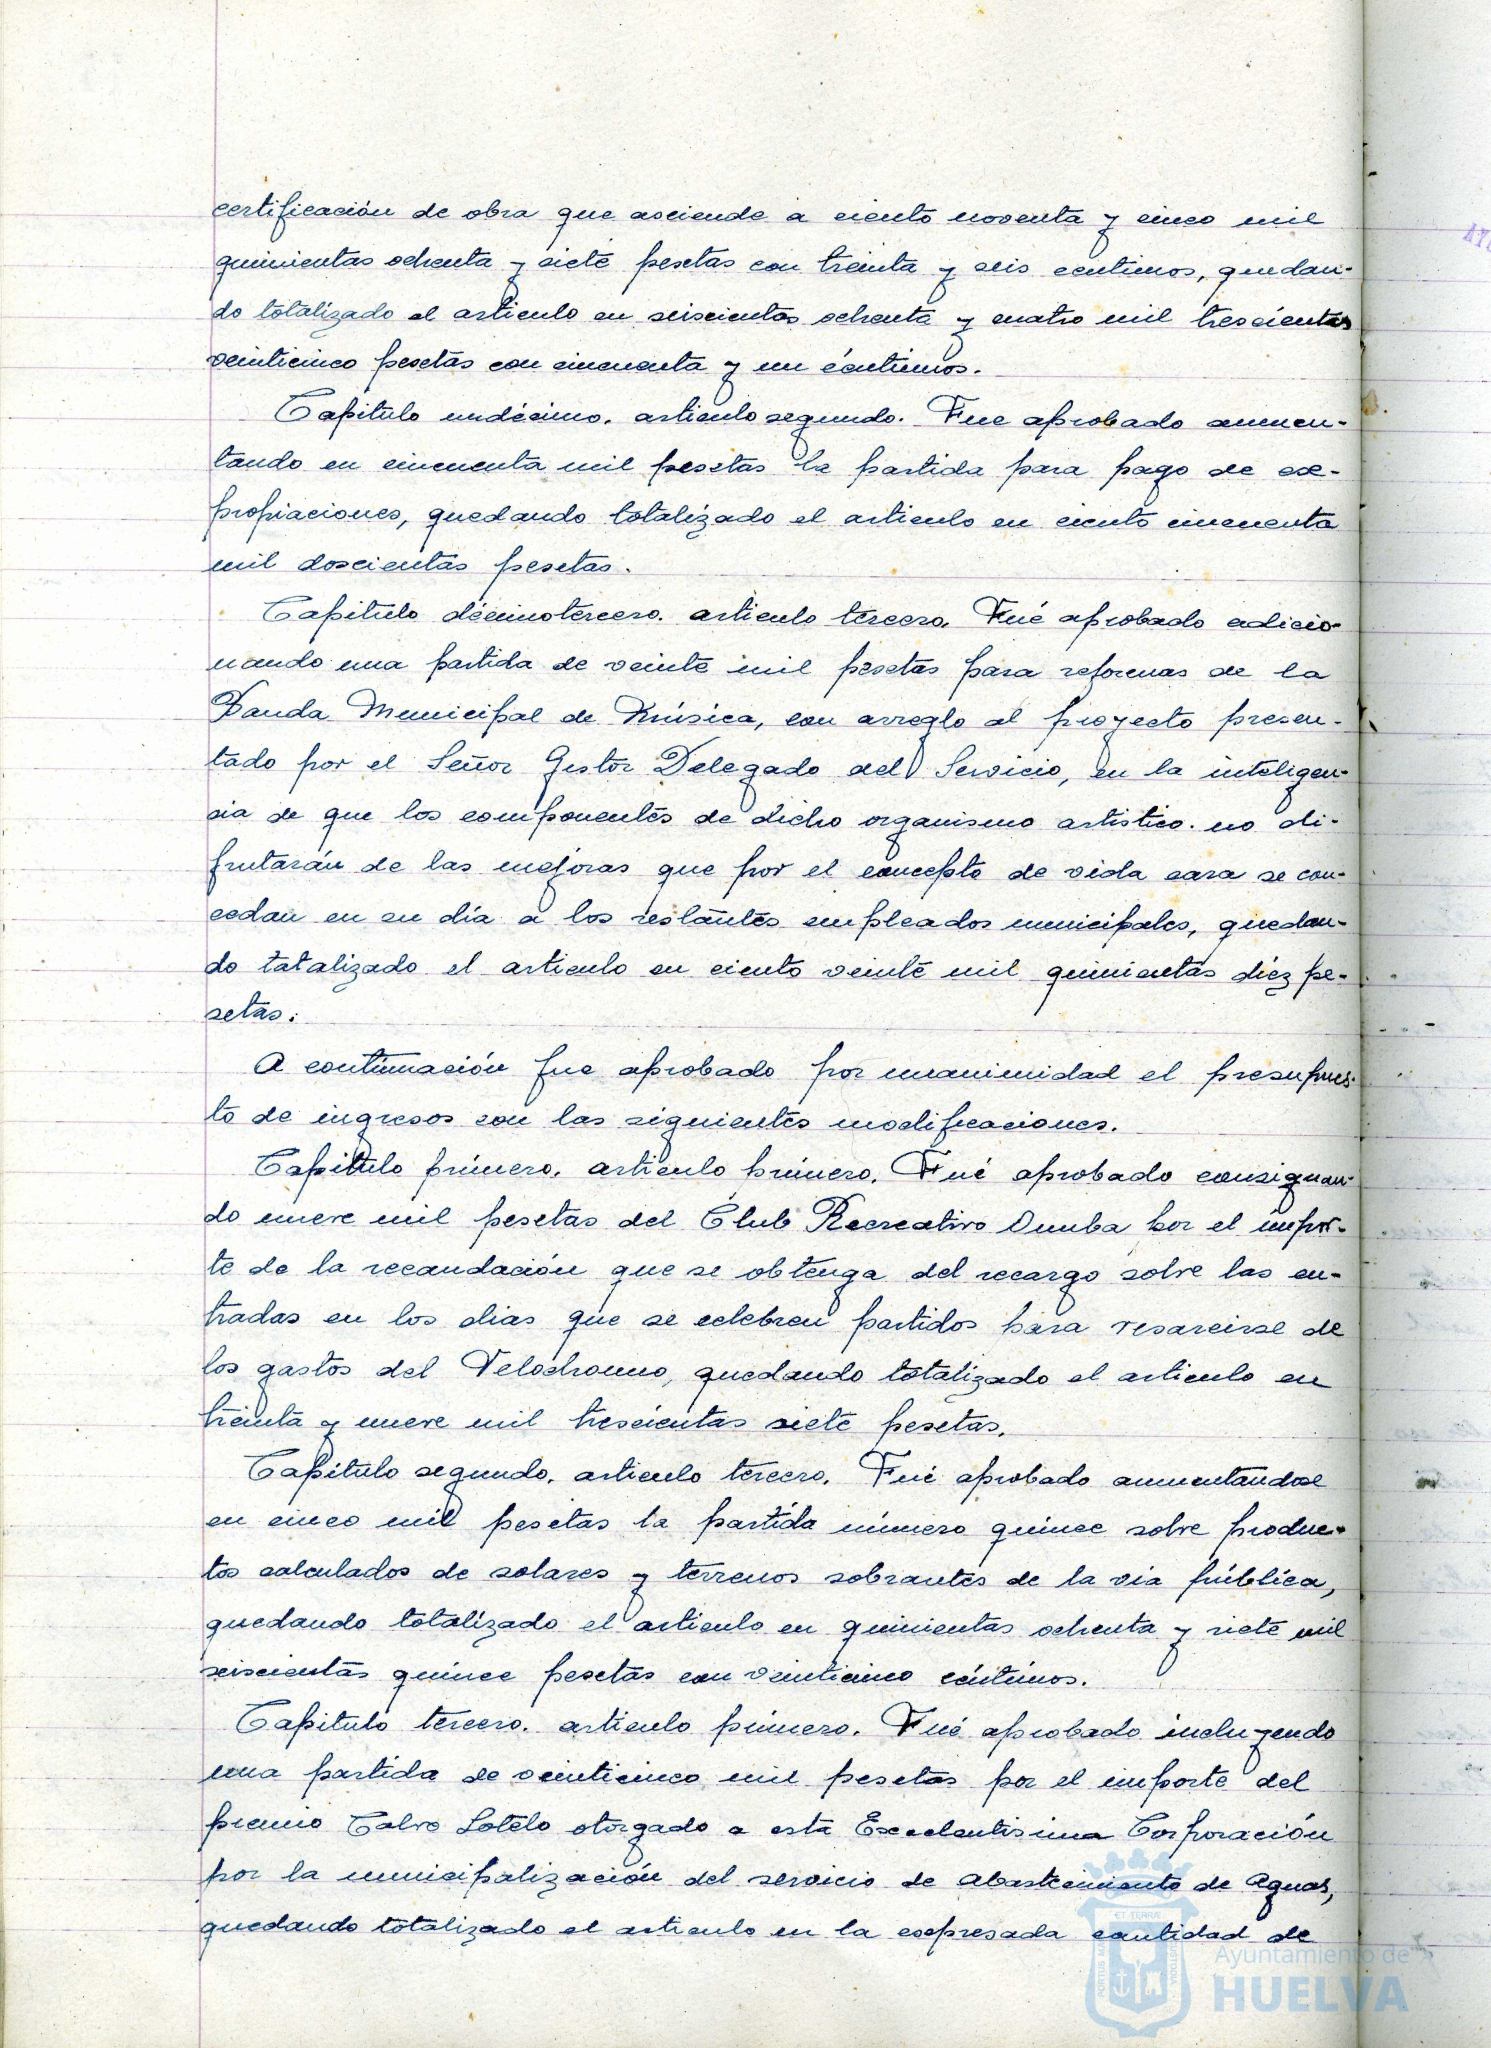 certificación de obra que asciende a ciento noventa y cinco mil
quinientas ochenta y siete pesetas con treinta y seis centimos, quedan-
do totalizado el articulo en seiscientas ochenta y cuatro mil trescientas
veinticinco pesetas con cincuenta y un céntimos.
Capitulo undécimo. articulo segundo. Fue aprobado aumen-
tando en cincuenta mil pesetas la partida para pago de ex-
propiaciones, quedando totalizado el articulo en ciento cincuenta
mil doscientas pesetas.
Capitulo décimotercero. articulo tercero. Fué aprobado adicio-
nando una partida de veinte mil pesetas para reformas de la
Banda Municipal de Música, con arreglo al proyecto presen-
tado por el Señor Gestor Delegado del Servicio, en la inteligen-
cia de que los componentes de dicho organismo artistico no di-
frutarán de las mejoras que por el concepto de vida cara se con-
cedan en su día a los restantes empleados municipales, quedan-
do tatalizado el articulo en ciento veinte mil quinientas diéz pe-
setas.
A continuación fue aprobado por unanimidad el presupues-
to de ingresos con las siguientes modificaciones.
Capitulo primero. articulo primero. Fué aprobado consignan-
do nueve mil pesetas del Club Recreativo Onuba por el impor-
te de la recaudación que se obtenga del recargo sobre las en-
tradas en los dias que se celebren partidos para resarcirse de
los gastos del Velodromo, quedando totalizado el articulo en
treinta y nueve mil trescientas siete pesetas.
Capitulo segundo. articulo tercero. Fué aprobado aumentandose
en cinco mil pesetas la partida número quince sobre produc-
tos calculados de solares y terrenos sobrantes de la via pública,
quedando totalizado el articulo en quinientas ochenta y siete mil
seiscientas quince pesetas con veinticinco céntimos.
Capitulo tercero. articulo primero. Fué aprobado incluyendo
una partida de veinticinco mil pesetas por el importe del
premio Calvo Sotelo otorgado a esta Excelentisima Corporación
por la municipalización del servicio de Abastecimiento de Aguas,
quedando totalizado el articulo en la expresada cantidad de
Ayuntamiento de
HUELVA